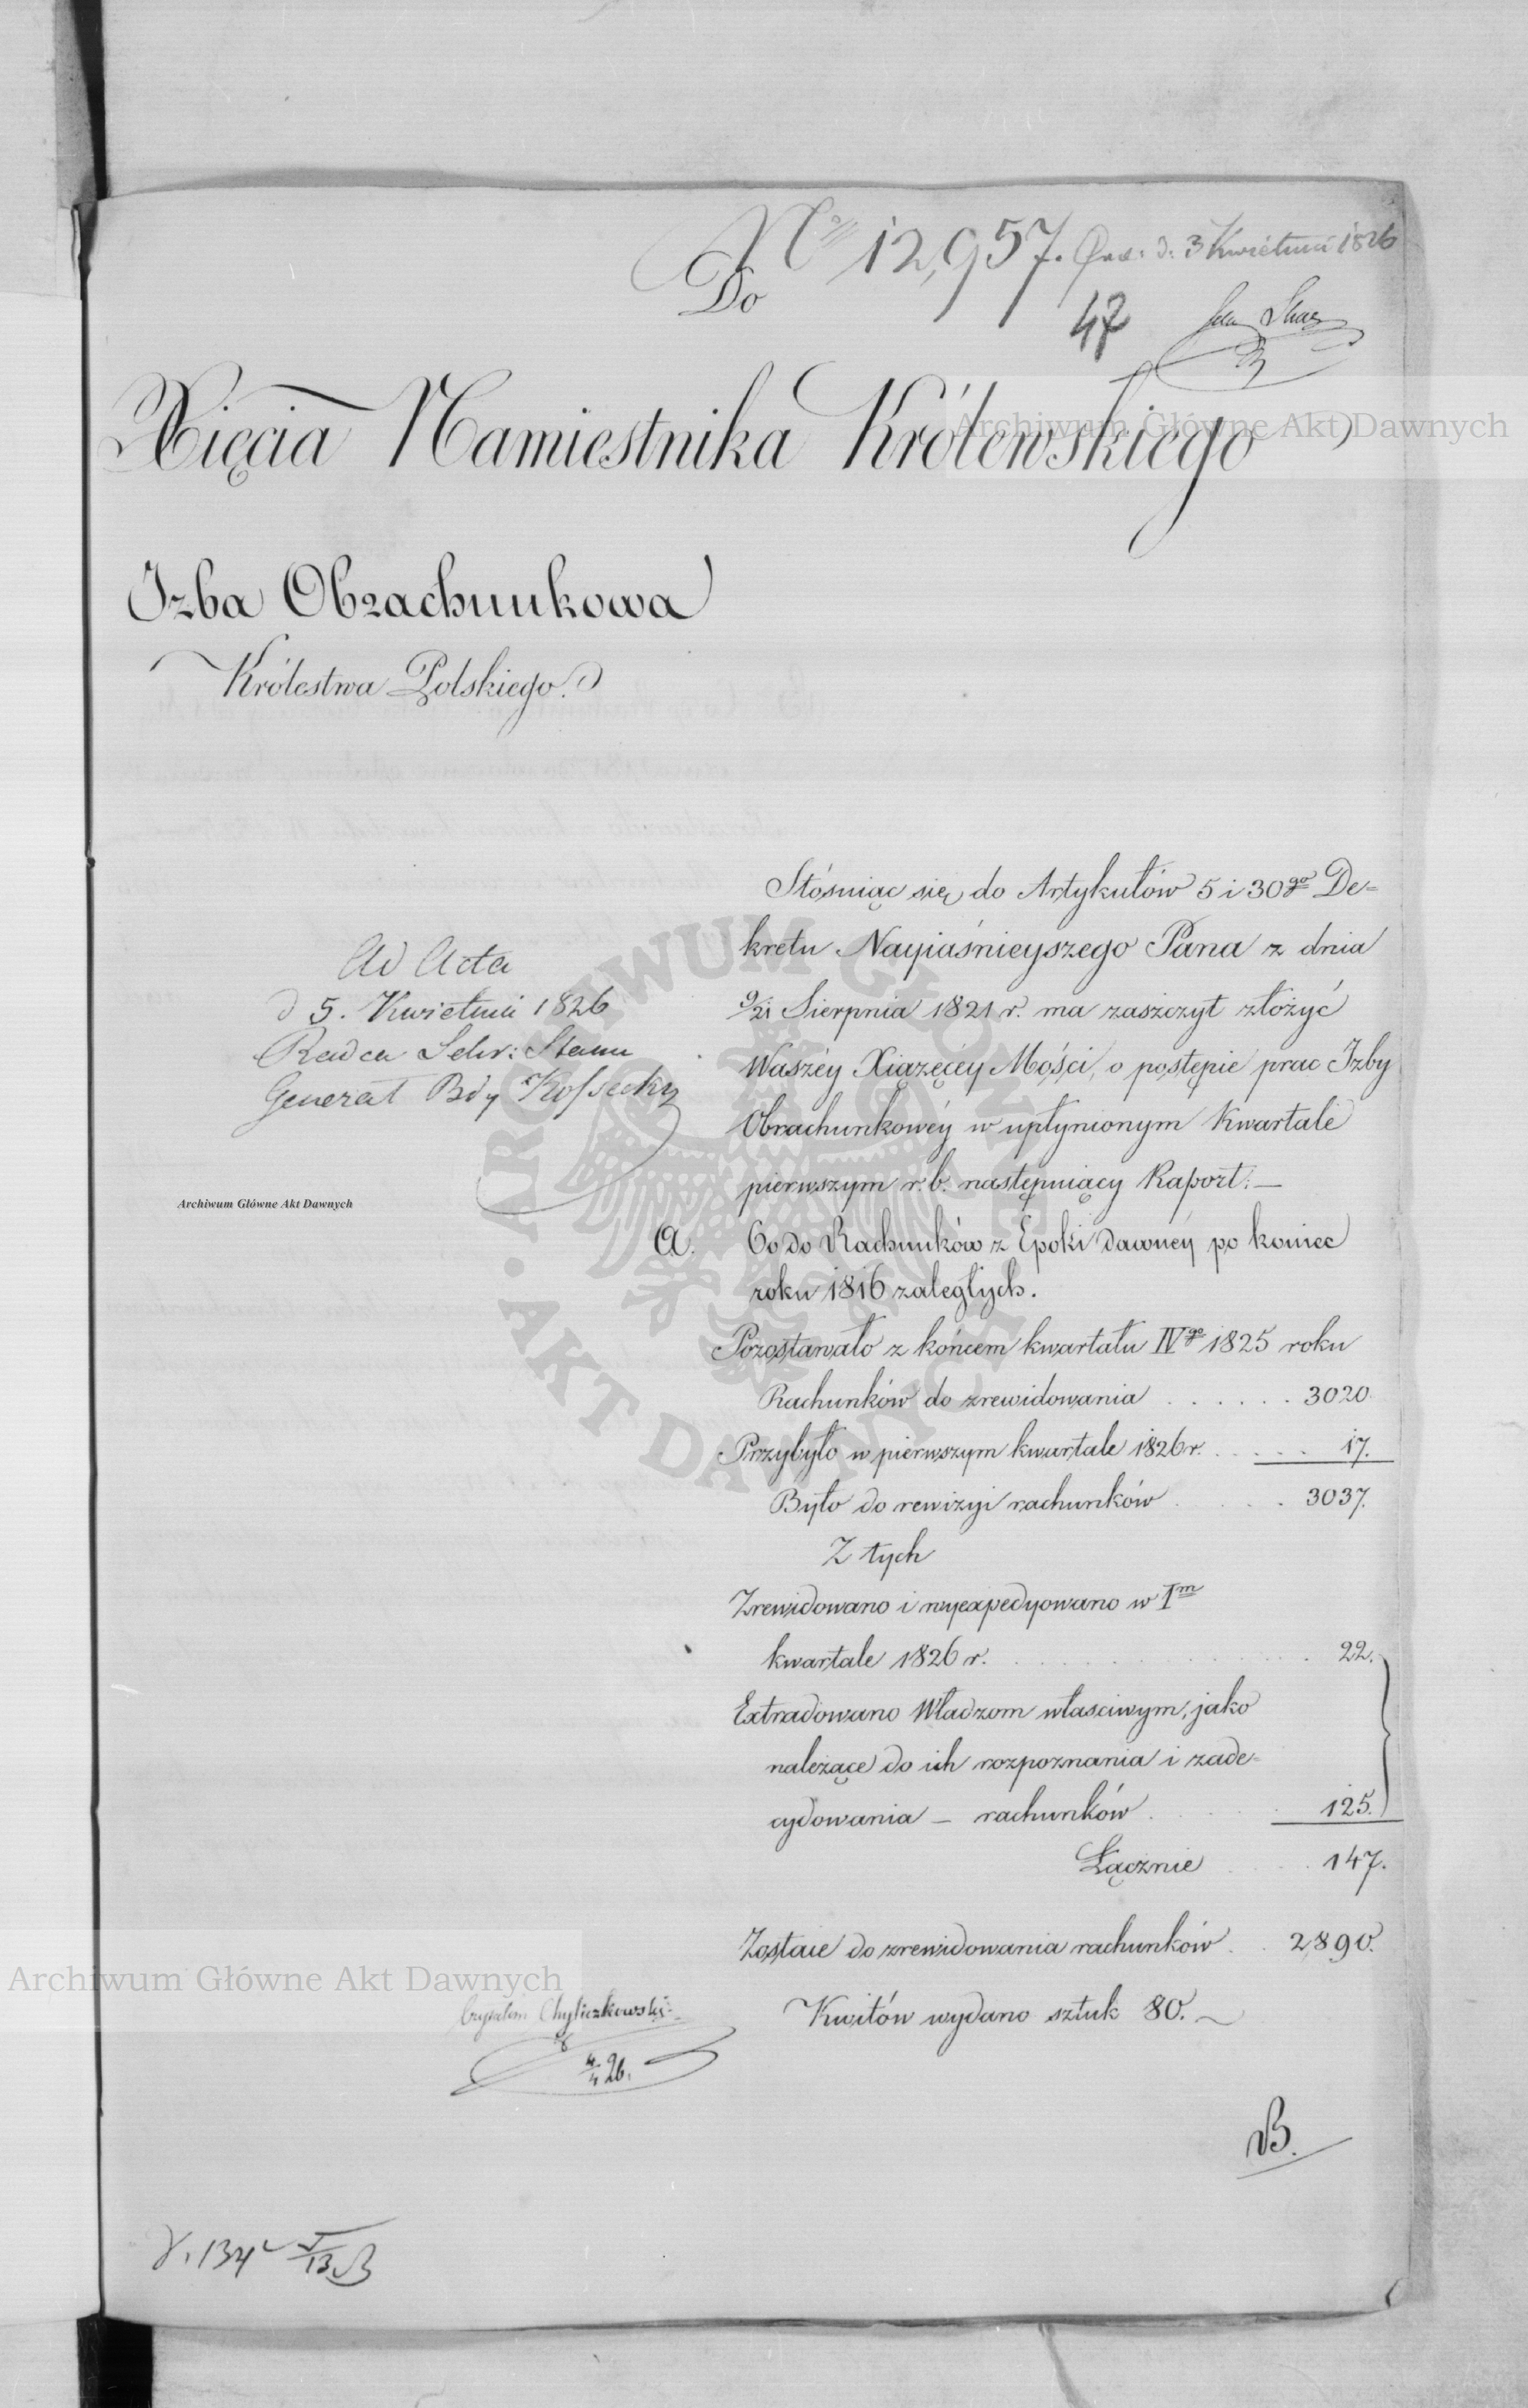 No 12,957. d: 3 Kwietnia 1826
Do
47
Xięcia Namiestnika Królewskiego
Archiwum Główne Akt Dawnych
Izba Obrachunkowa
Królestwa Polskiego.
Ad Acta
d 5. Kwietnia 1826
Radca Sekr: Stanu
Generał Bdy Kossecky
Archiwum Główne Akt Dawnych
Stósuiąc się do Artykułów 5 i 30go De=
kretu Nayiaśnieyszego Pana z dnia
9/21 Sierpnia 1821 r. ma zaszczyt złożyć
Waszéy Xiążęcéy Mości, o postępie prac Izby
Obrachunkowéy w upłynionym Kwartale
pierwszym r. b. następuiący Raport. —
A. Co do Rachunków z Epoki dawnéy po koniec
roku 1816 zaległych.
Pozostawało z końcem kwartału IVgo 1825 roku
Rachunków do zrewidowania . . . . . . 3020.
Przybyło w pierwszym kwartale 1826 r. . . . . . 17.
Było do rewizyi rachunków . . . . 3037.
Z tych
Zrewidowano i wyexpedyowano w Im
kwartale 1826 r. . . . . . . . . . . 22.
Extradowano Władzom właściwym, jako
należące do ich rozpoznania i zade=
cydowania — rachunków . . . . 125.
Łącznie . . . . 147.
Zostaie do zrewidowania rachunków . . 2890.
Kwitów wydano sztuk 80. —
ARCHIWUM GŁÓWNE AKT DAWNYCH
Archiwum Główne Akt Dawnych
Czytałem Chyliczkowski
4/4 26.
B.